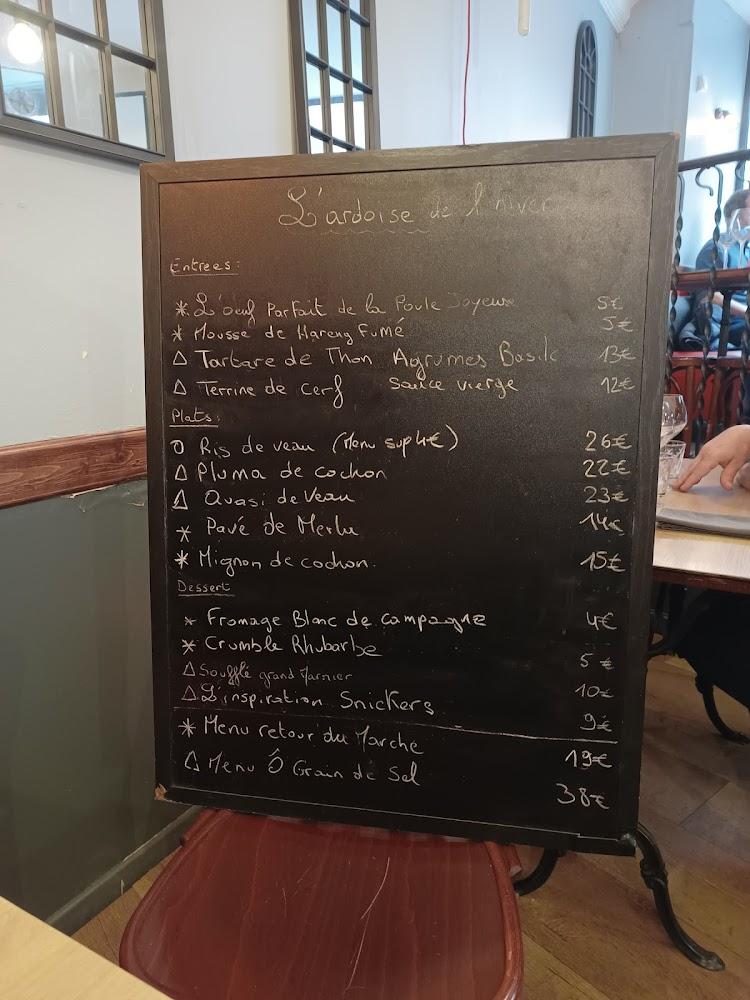 L'ardoise de l'hiver
Entrees:
* L'oeuf Parfait de la Poule Joyeuse 5€
* Mousse de Hareng Fumé 5€
△ Tartare de Thon Agrumes Basilc 13€
△ Terrine de cerf Sauce vierge 12€
Plats:
O Ris de veau (Menu sup 4€) 26€
△ Pluma de cochon 22€
△ Quasi de Veau 23€
* Pavé de Merlu 14€
* Mignon de cochon. 15€
Dessert
* Fromage Blanc de campagne 4€
* Crumble Rhubarbe 5€
△ Soufflé grand Marnier 10€
△ L'inspiration Snickers 9€
* Menu retour du Marche 19€
△ Menu Ô Grain de Sel 38€